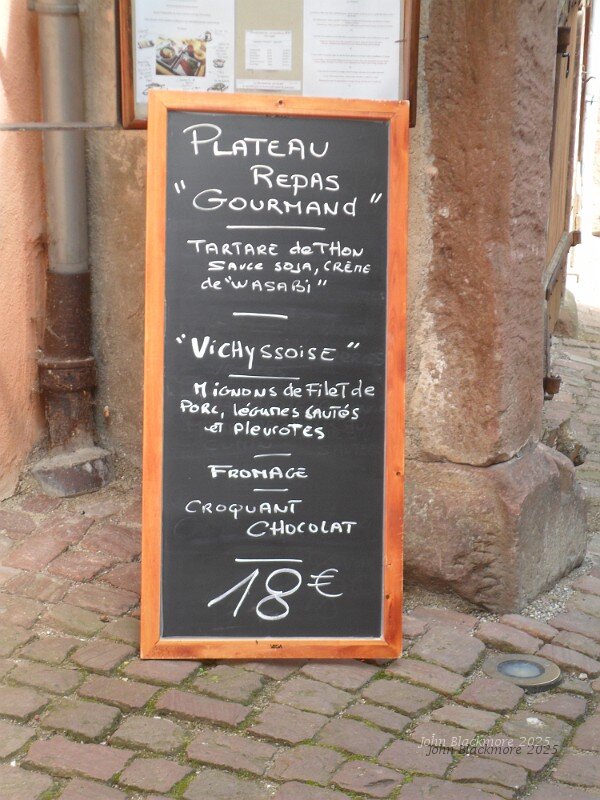 PLATEAU
REPAS
"GOURMANd"
TARTARE de THON
SAUCE SOJA, CRÈME
de "WASABi"
"VICHYSSOISE"
MIGNONS de FILET de
PORC, légumes SAUTÉS
et pleurotes
FROMAGE
CROQUANT
CHOCOLAT
18€
John Blackmore 2025
John Blackmore 2025